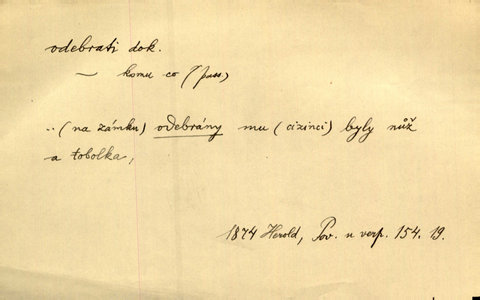 odebrati dok.
— komu co (pass)
..(na zámku) odebrány mu (cizinci) byly nůž
a tobolka,
1874 Herold, Pov. u verp. 154. 19.